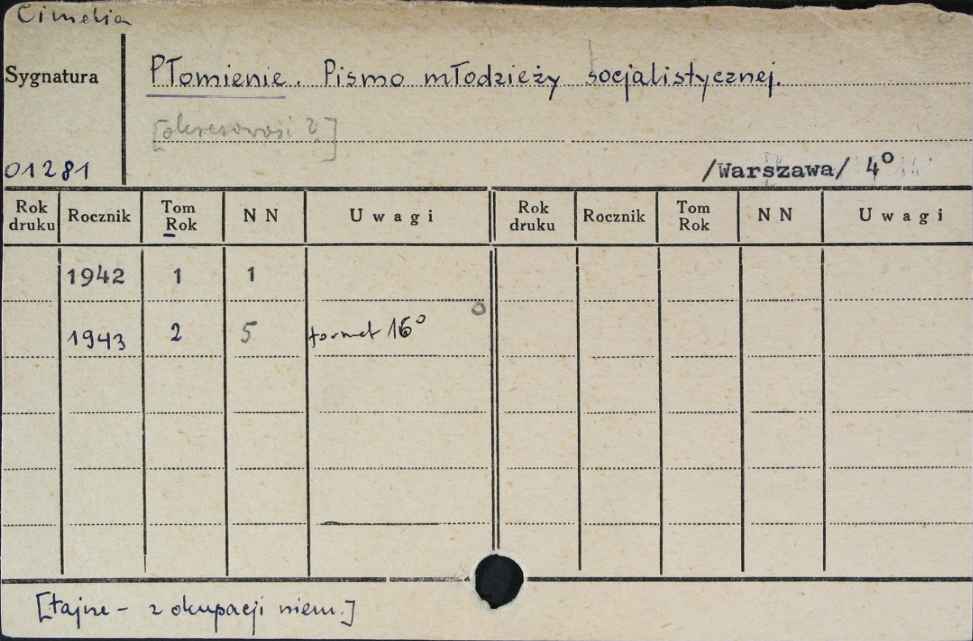 Cimelia
Sygnatura
Płomienie. Pismo młodzieży socjalistycznej.
[okresowość ?]
01281
/Warszawa/ 4°
Rok druku Rocznik Tom Rok NN Uwagi Rok druku Rocznik Tom Rok NN Uwagi
1942 1 1
1943 2 5 format 16°
[tajne - z okupacji niem.]